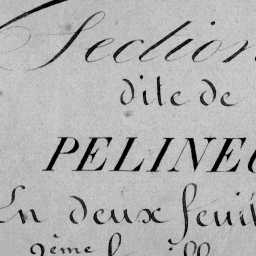 Section
dite de
PELINEU
En deux feuil
2ème f